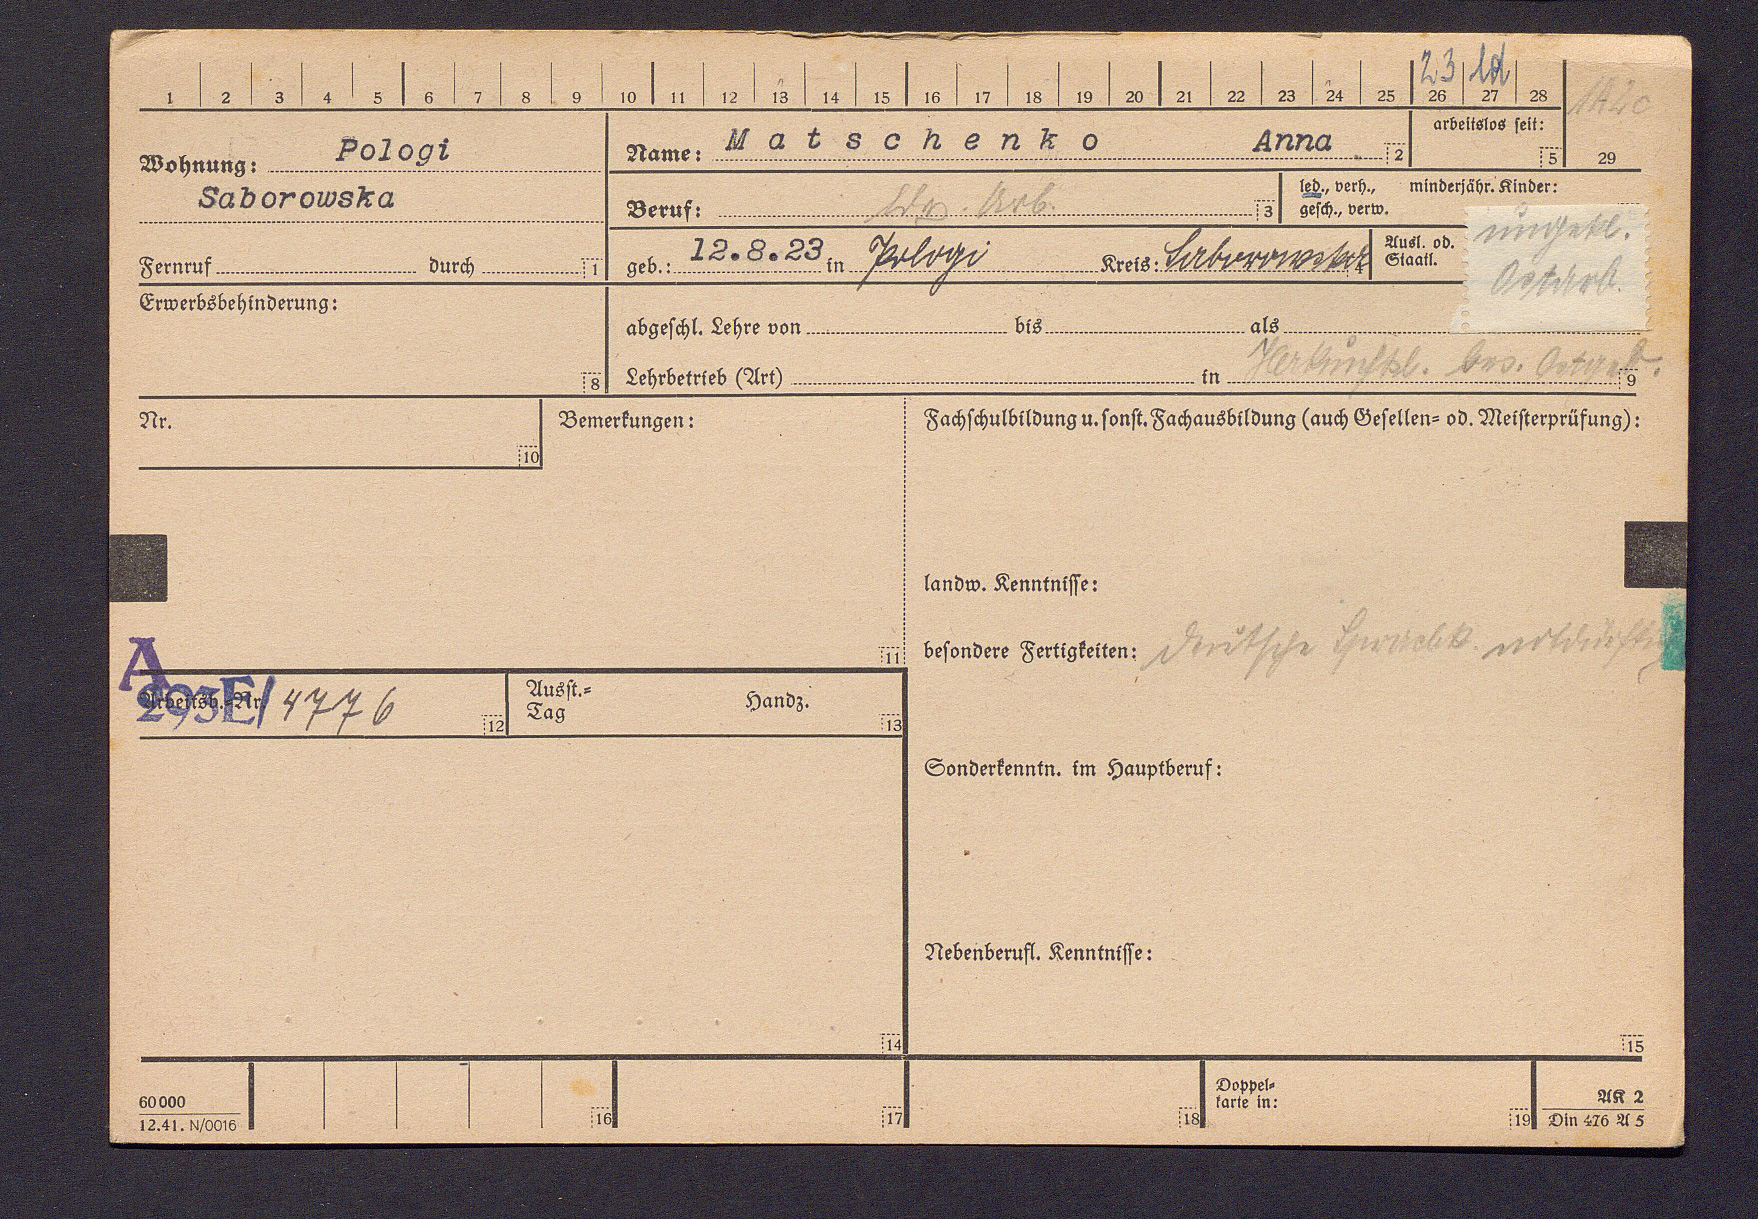 23 ld
1 2 3 4 5 6 7 8 9 10 11 12 13 14 15 16 17 18 19 20 21 22 23 24 25 26 27 28
29
Wohnung: Pologi
Saborowska
Fernruf durch 1
Name: Matschenko Anna 2
arbeitslos seit: 5
Beruf: ldw. Arb. 3
led., verh., minderjähr. Kinder:
gesch., verw.
geb.: 12.8.23 in Pologi Kreis: Saborowska 4
Ausl. od.
Staatl.
ungekl.
Ostarb.
Erwerbsbehinderung: 8
abgeschl. Lehre von bis als
Lehrbetrieb (Art) in 9
Herkunftsl. bes. Ostgeb.
Nr. 10
Bemerkungen: 11
Fachschulbildung u. sonst. Fachausbildung (auch Gesellen- od. Meisterprüfung):
landw. Kenntnisse:
besondere Fertigkeiten: deutsche Sprachk. notdürftig
A
293E/ 4776
Arbeitsb.-Nr. 12
Ausst.-
Tag Handz. 13
Sonderkenntn. im Hauptberuf:
Nebenberufl. Kenntnisse:
14 15
60000
12.41. N/0016
16 17 18
Doppel-
karte in: 19
AK 2
Din 476 A 5